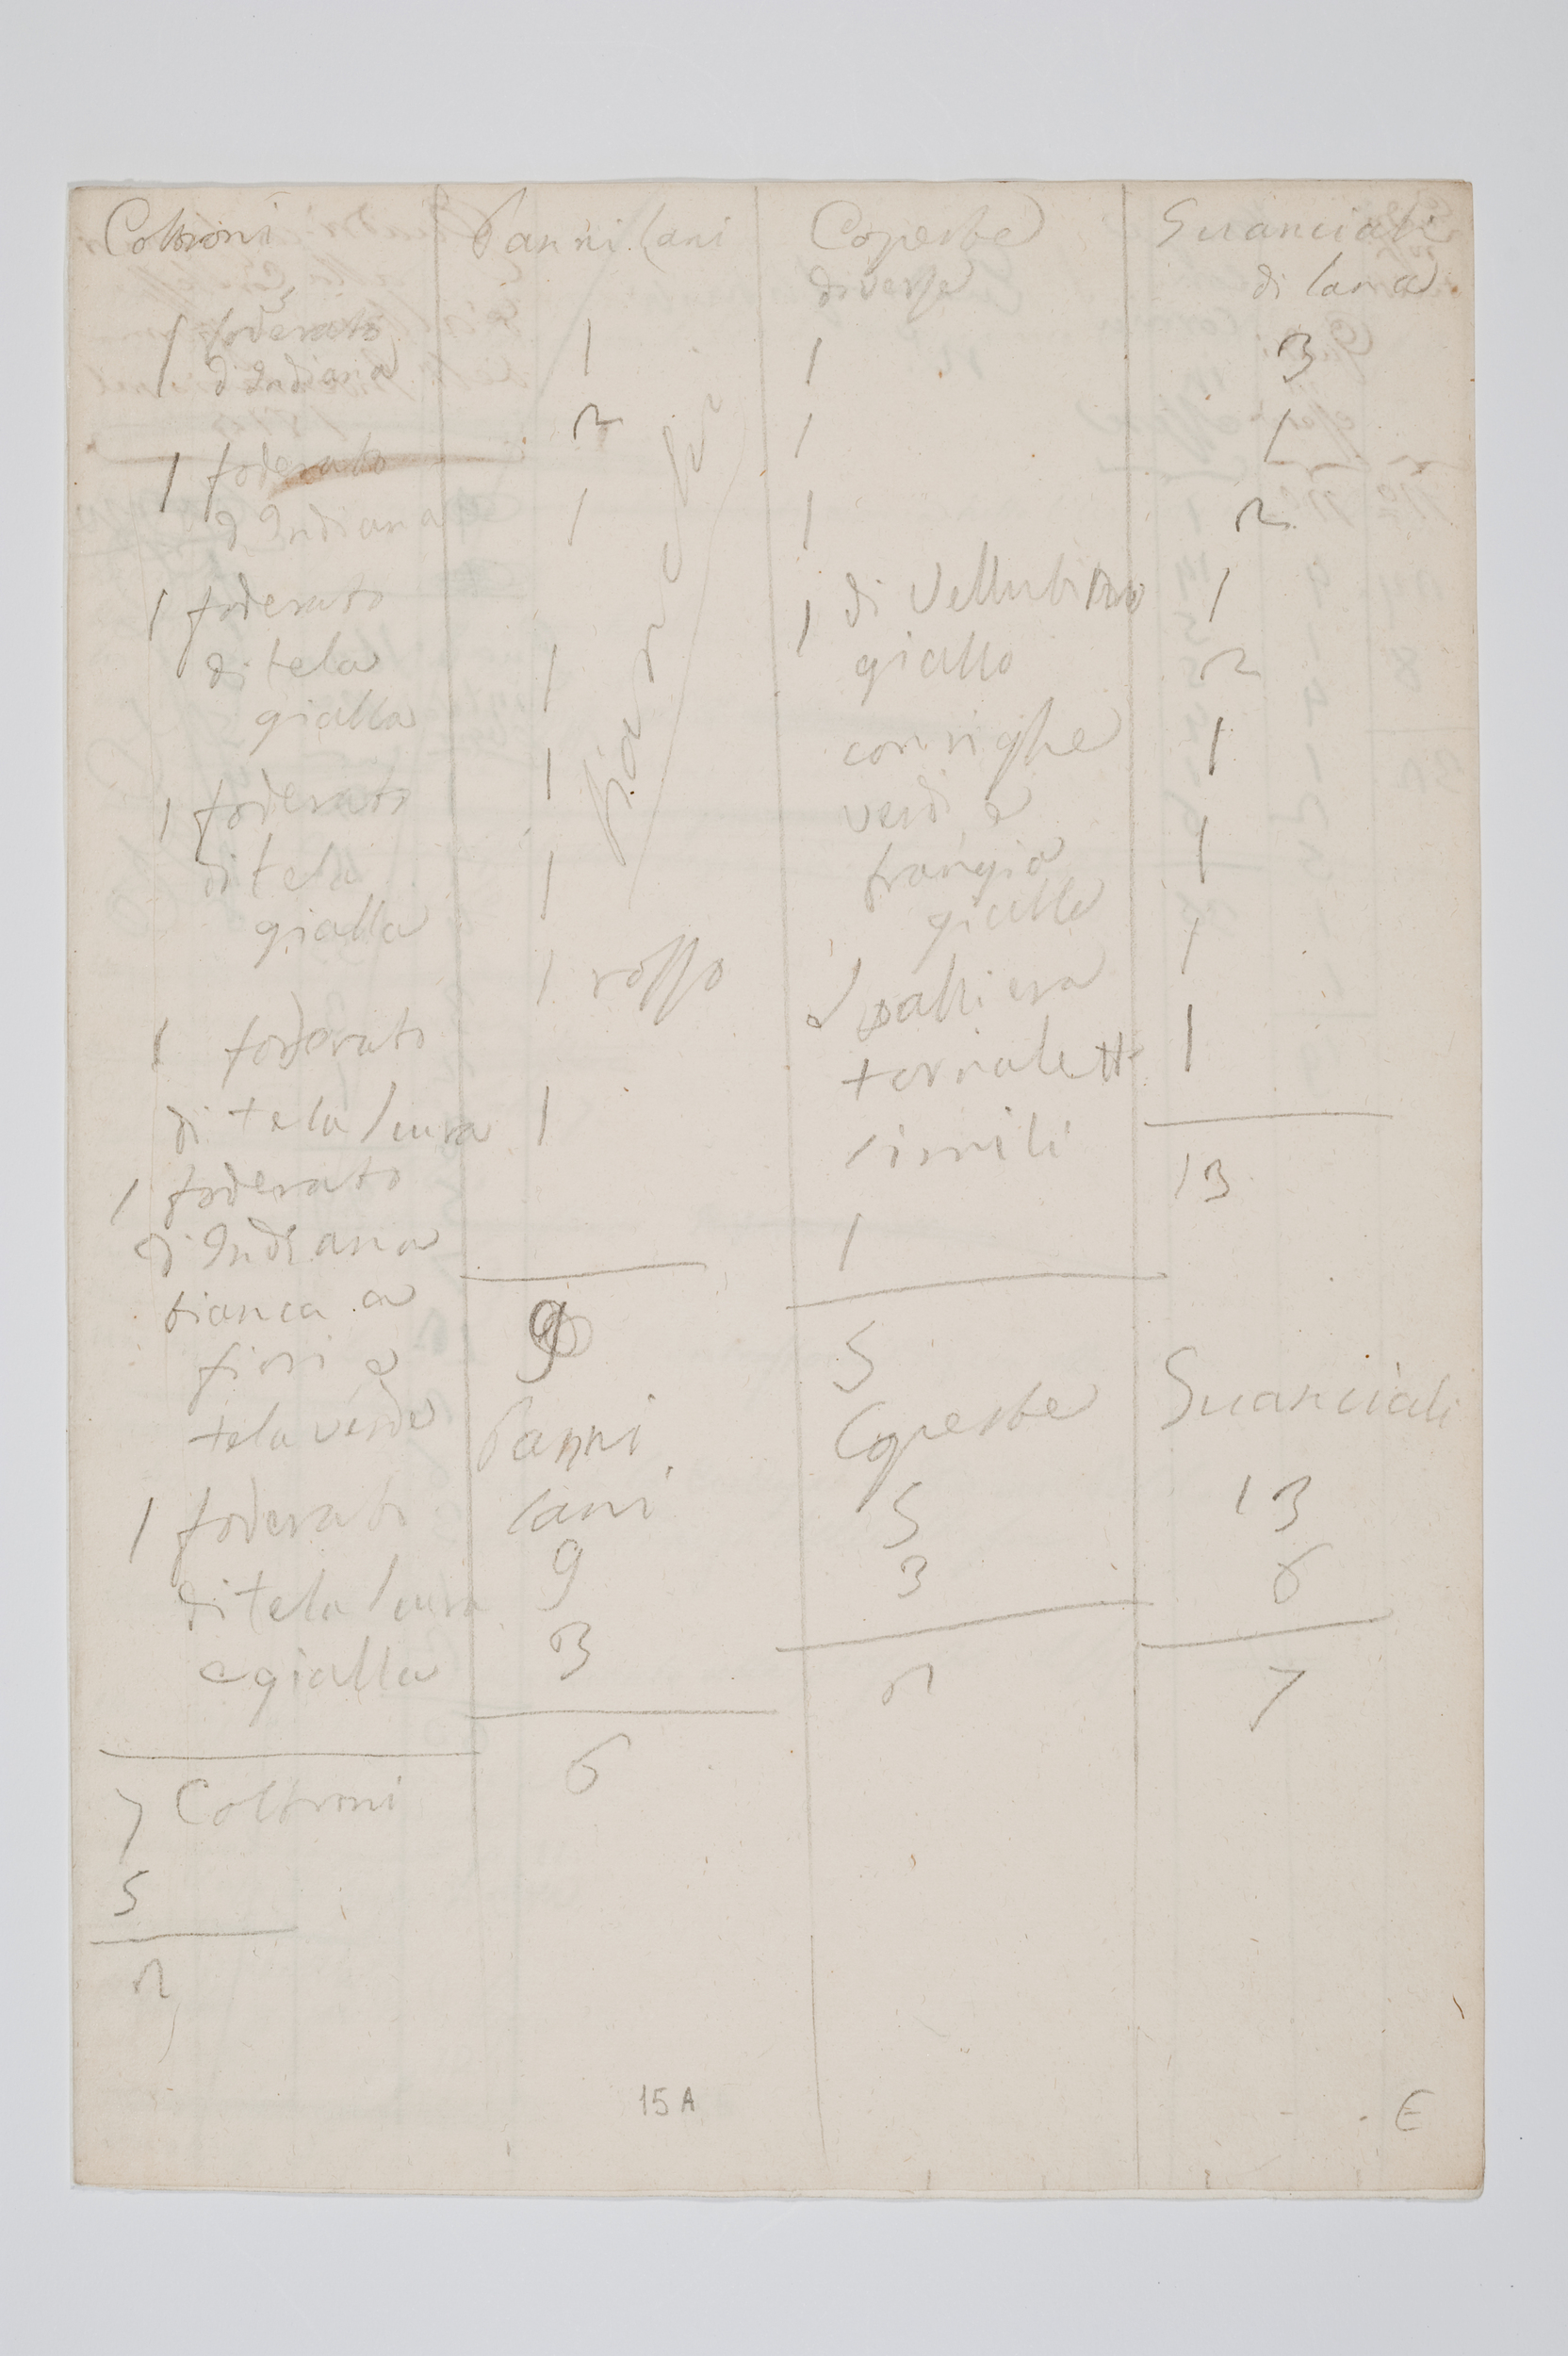 Coltroni
1 foderato
d'Indiana
1 foderato
d'Indiana
1 foderato
di tela
gialla
1 foderato
di tela
gialla
1 foderato
di tela
1 foderato
di Indiana
bianca a
fiori e
tela verde
1 foderato
di tela
e gialla
7 Coltroni
5
2
Panni lani
1
2
1
1
1
1
1 rosso
1
9
Panni
lani
9
3
6
bianchi
Coperte
diverse
1
1
1
1 di Vellutino
giallo
con righe
verdi e
frangia
gialla
e spalliera
tornaletti
simili
1
5
Coperte
5
3
2
Guanciali
di lana
3
1
2
1
2
1
1
1
1
13
Guanciali
13
6
7
15 A
E